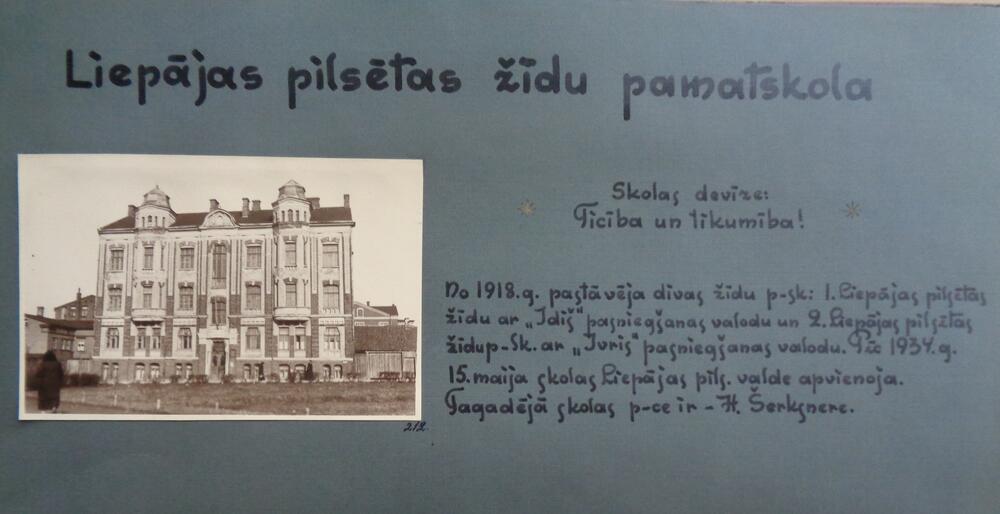 Liepājas pilsētas žīdu pamatskola
Skolas devīze:
Ticība un tikumība!
No 1918.g. pastāvēja divas žīdu p-sk: 1. Liepājas pilsētas
žīdu ar „Idiš" pasniegšanas valodu un 2. Liepājas pilsētas
žīdu p-sk. ar „Ivris" pasniegšanas valodu. Pēc 1934.g.
15. maija skolas Liepājas pils. valde apvienoja.
Tagadējā skolas p-ce ir - H. Šerksnere.
212.